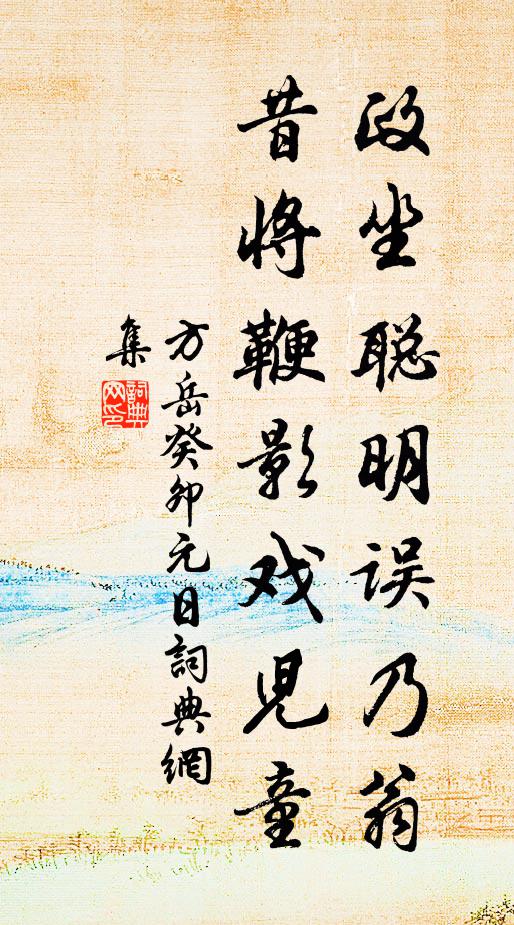 政坐聪明误乃翁
昔将鞭影戏兒童
方岳癸卯元日詞典網
集
詞典
网印